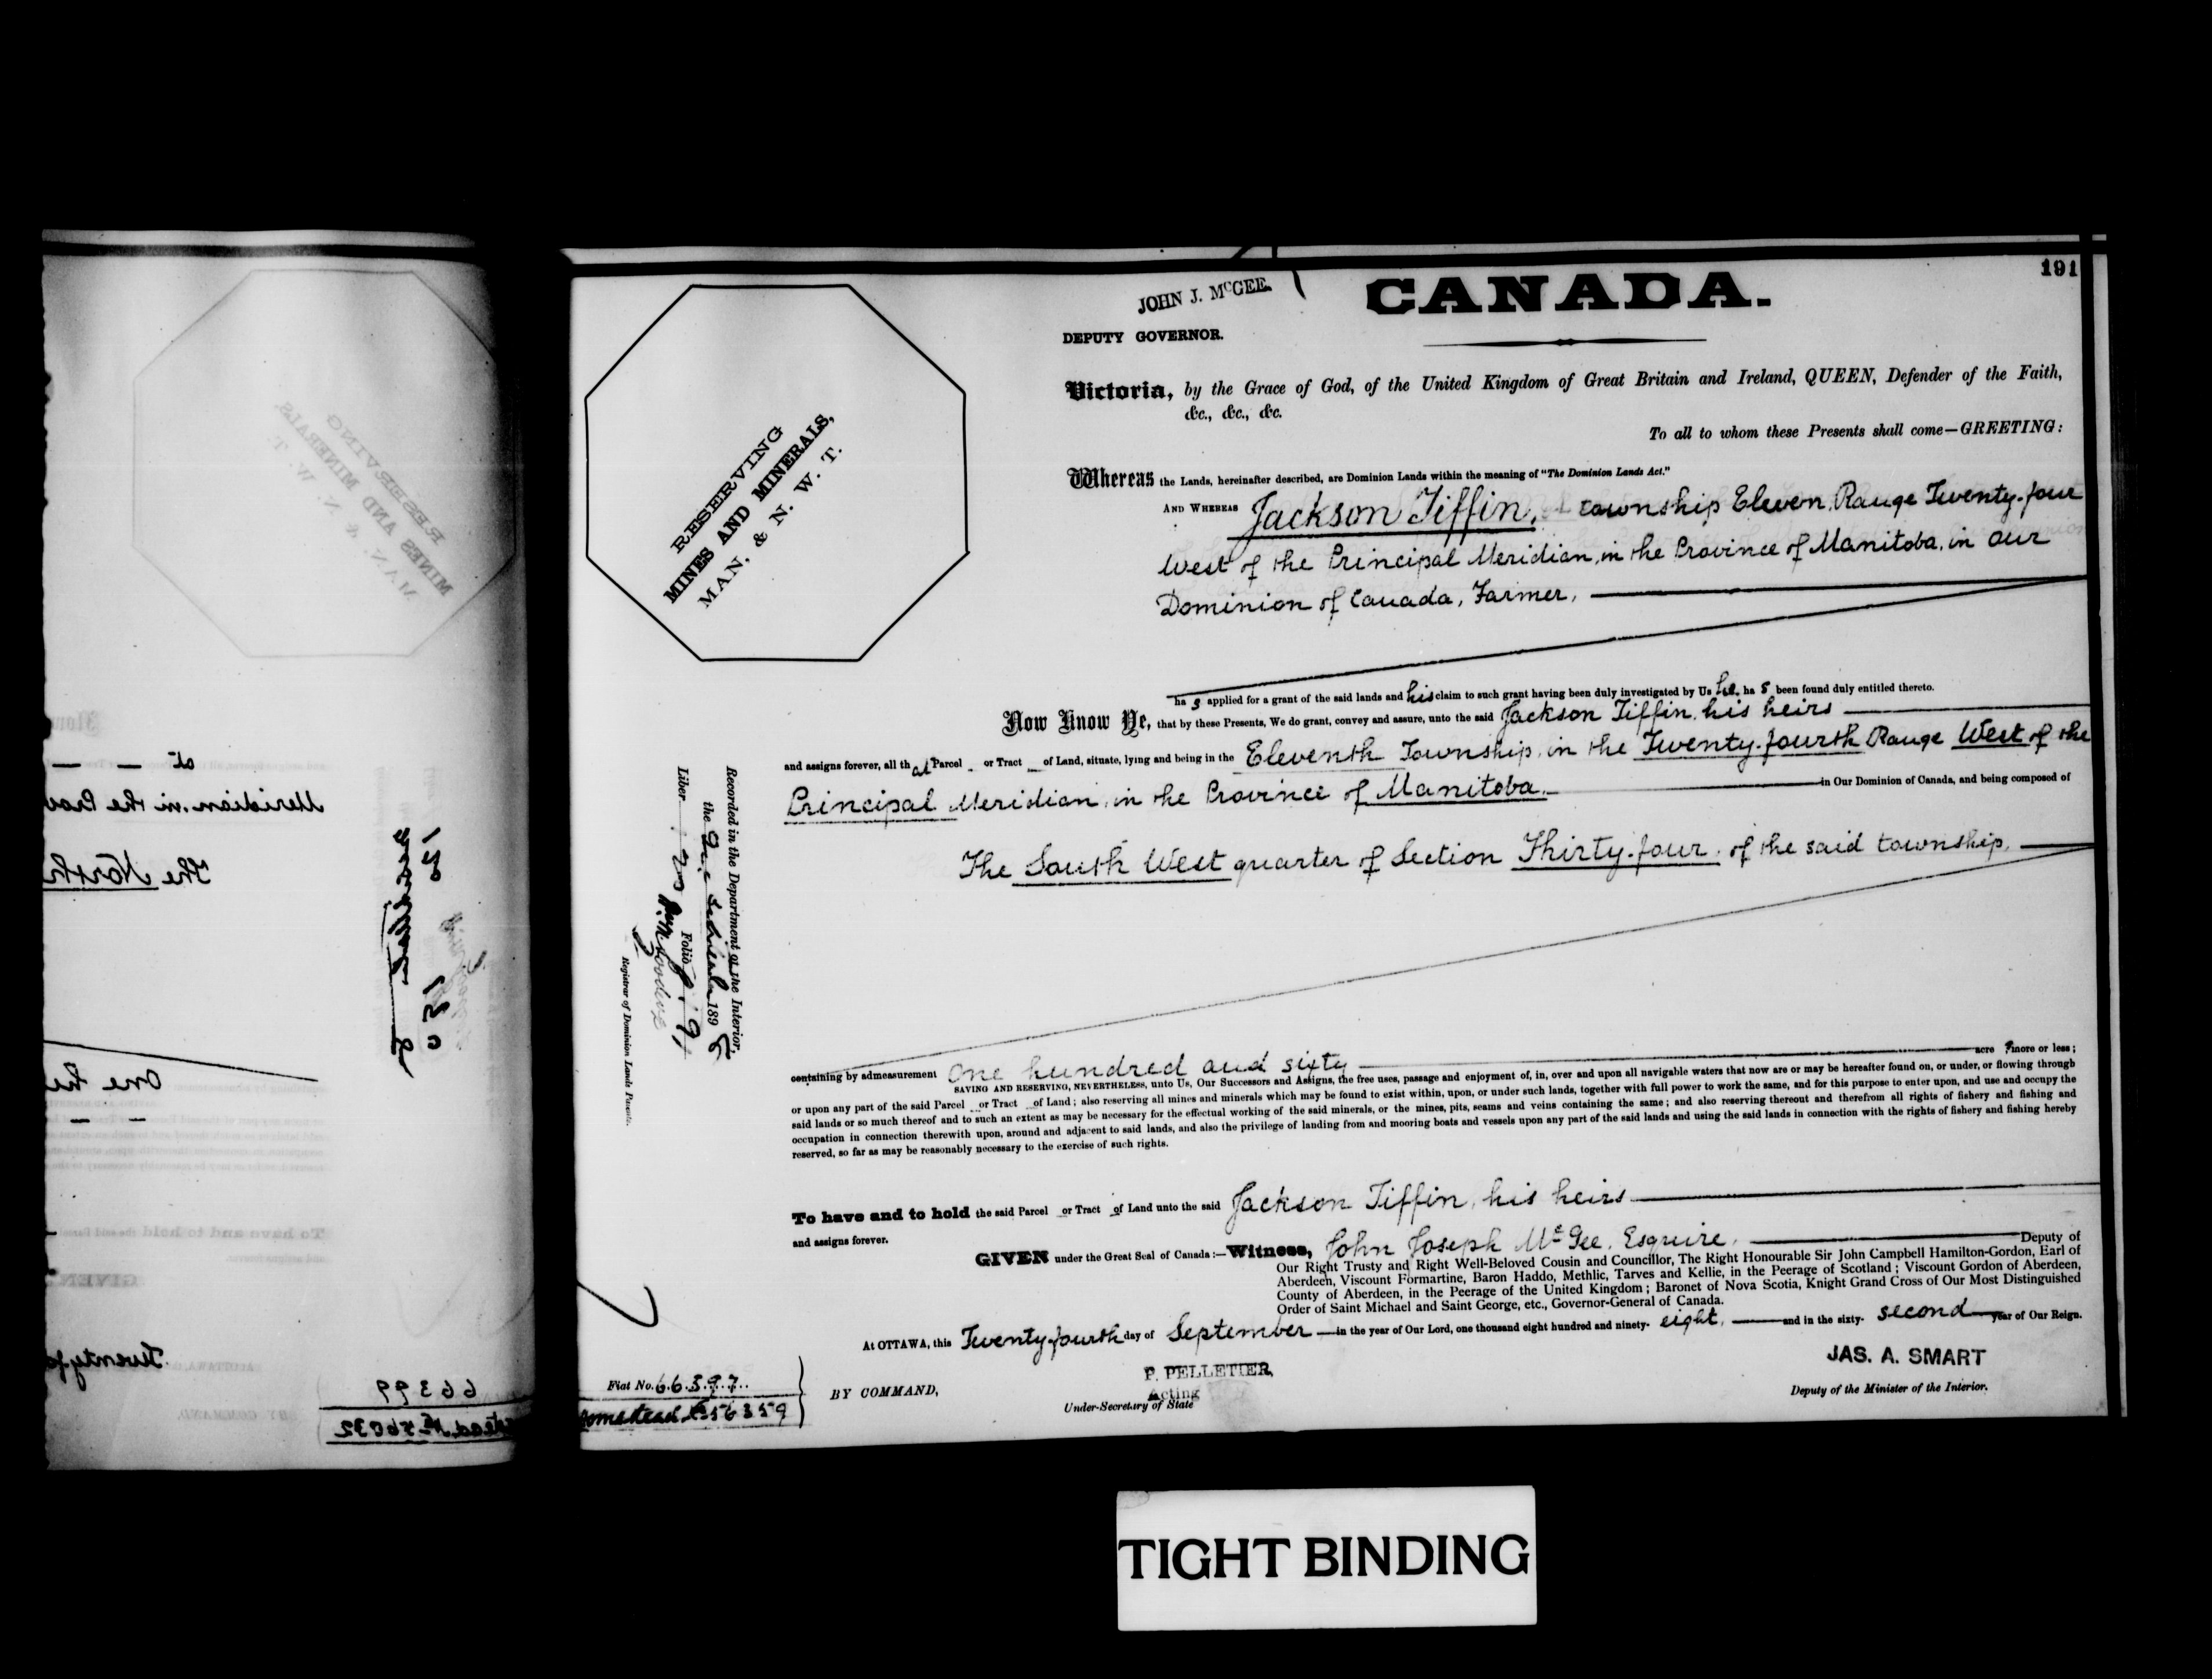 191
JOHN J. McGEE.
CANADA.
DEPUTY GOVERNOR.
Victoria, by the Grace of God, of the United Kingdom of Great Britain and Ireland, QUEEN, Defender of the Faith,
&c., &c., &c.
To all to whom these Presents shall come—GREETING:
RESERVING
MINES AND MINERALS,
MAN. & N. W. T.
Whereas the Lands, hereinafter described, are Dominion Lands within the meaning of "The Dominion Lands Act."
AND WHEREAS Jackson Tiffin, township Eleven, Range Twenty-four
West of the Principal Meridian, in the Province of Manitoba, in Our
Dominion of Canada, Farmer,
ha s applied for a grant of the said lands and his claim to such grant having been duly investigated by Us he ha s been found duly entitled thereto.
Now Know Ye, that by these Presents, We do grant, convey and assure, unto the said Jackson Tiffin, his heirs
and assigns forever, all that Parcel or Tract of Land, situate, lying and being in the Eleventh Township, in the Twenty-fourth Range West of the
Principal Meridian, in the Province of Manitoba, in Our Dominion of Canada, and being composed of
The South West quarter of Section Thirty-four, of the said township,
Recorded in the Department of the Interior,
the October 189 8
Liber Folio 191
Registrar of Dominion Lands Patents.
containing by admeasurement One hundred and sixty acre s more or less;
SAVING AND RESERVING, NEVERTHELESS, unto Us, Our Successors and Assigns, the free uses, passage and enjoyment of, in, over and upon all navigable waters that now are or may be hereafter found on, or under, or flowing through
or upon any part of the said Parcel or Tract of Land; also reserving all mines and minerals which may be found to exist within, upon, or under such lands, together with full power to work the same, and for this purpose to enter upon, and use and occupy the
said lands or so much thereof and to such an extent as may be necessary for the effectual working of the said minerals, or the mines, pits, seams and veins containing the same; and also reserving thereout and therefrom all rights of fishery and fishing and
occupation in connection therewith upon, around and adjacent to said lands, and also the privilege of landing from and mooring boats and vessels upon any part of the said lands and using the said lands in connection with the rights of fishery and fishing hereby
reserved, so far as may be reasonably necessary to the exercise of such rights.
To have and to hold the said Parcel or Tract of Land unto the said Jackson Tiffin, his heirs
and assigns forever.
GIVEN under the Great Seal of Canada:—Witness, John Joseph McGee, Esquire, Deputy of
Our Right Trusty and Right Well-Beloved Cousin and Councillor, The Right Honourable Sir John Campbell Hamilton-Gordon, Earl of
Aberdeen, Viscount Formartine, Baron Haddo, Methlic, Tarves and Kellie, in the Peerage of Scotland; Viscount Gordon of Aberdeen,
County of Aberdeen, in the Peerage of the United Kingdom; Baronet of Nova Scotia, Knight Grand Cross of Our Most Distinguished
Order of Saint Michael and Saint George, etc., Governor-General of Canada.
At OTTAWA, this Twenty-fourth day of September in the year of Our Lord, one thousand eight hundred and ninety- eight, and in the sixty- second year of Our Reign.
Fiat No. 66397
Homestead No 56359
BY COMMAND,
P. PELLETIER,
Acting
Under-Secretary of State
JAS. A. SMART
Deputy of the Minister of the Interior.
TIGHT BINDING